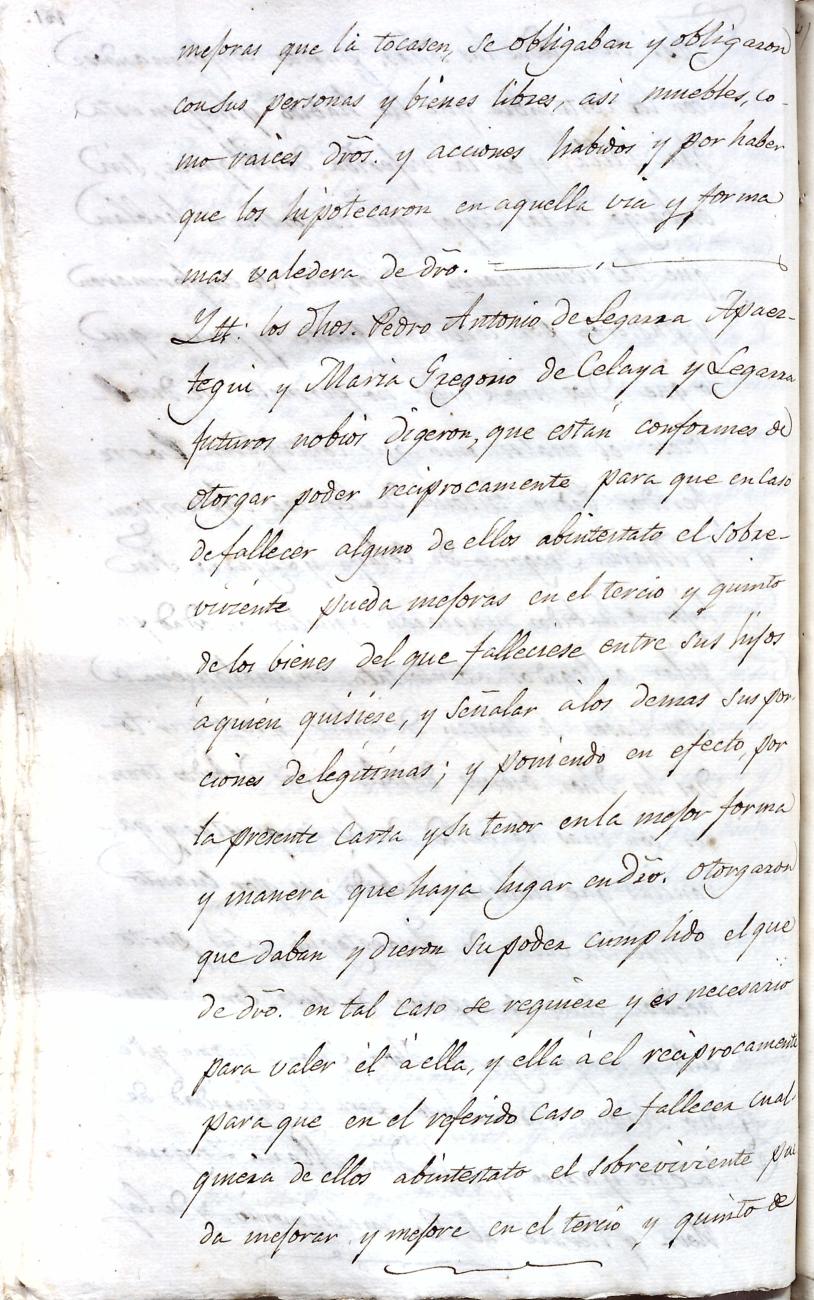 mejoras que la tocasen, se obligaban y obligaron
con sus personas y bienes libres, asi muebles, co-
mo raices dr̃os. y acciones habidos y por haber
que los hipotecaron en aquella via y forma
mas valedera de dr̃o.
Ytt: los dhos. Pedro Antonio de Legarra Apaez-
tegui y Maria Gregorio de Celaya y Legarra
futuros nobios digeron, que están conformes de
otorgar poder reciprocamente para que en caso
de fallecer alguno de ellos abintestato el sobre-
viviente pueda mejoras en el tercio y quinto
de los bienes del que falleciese entre sus hijos
á quien quisiese, y señalar à los demas sus por-
ciones de legitimas; y poniendo en efecto, por
la presente Carta y su tenor en la mejor forma
y manera que haya lugar en Dr̃o. otorgaron
que daban y dieron su poder cumplido el que
de dr̃o. en tal caso se requiere y es necesario
para valer él à ella, y ella à el reciprocamente
para que en el referido caso de fallecer cual-
quiera de ellos abintestato el sobreviviente pue
da mejorar y mejore en el tercio y quinto de